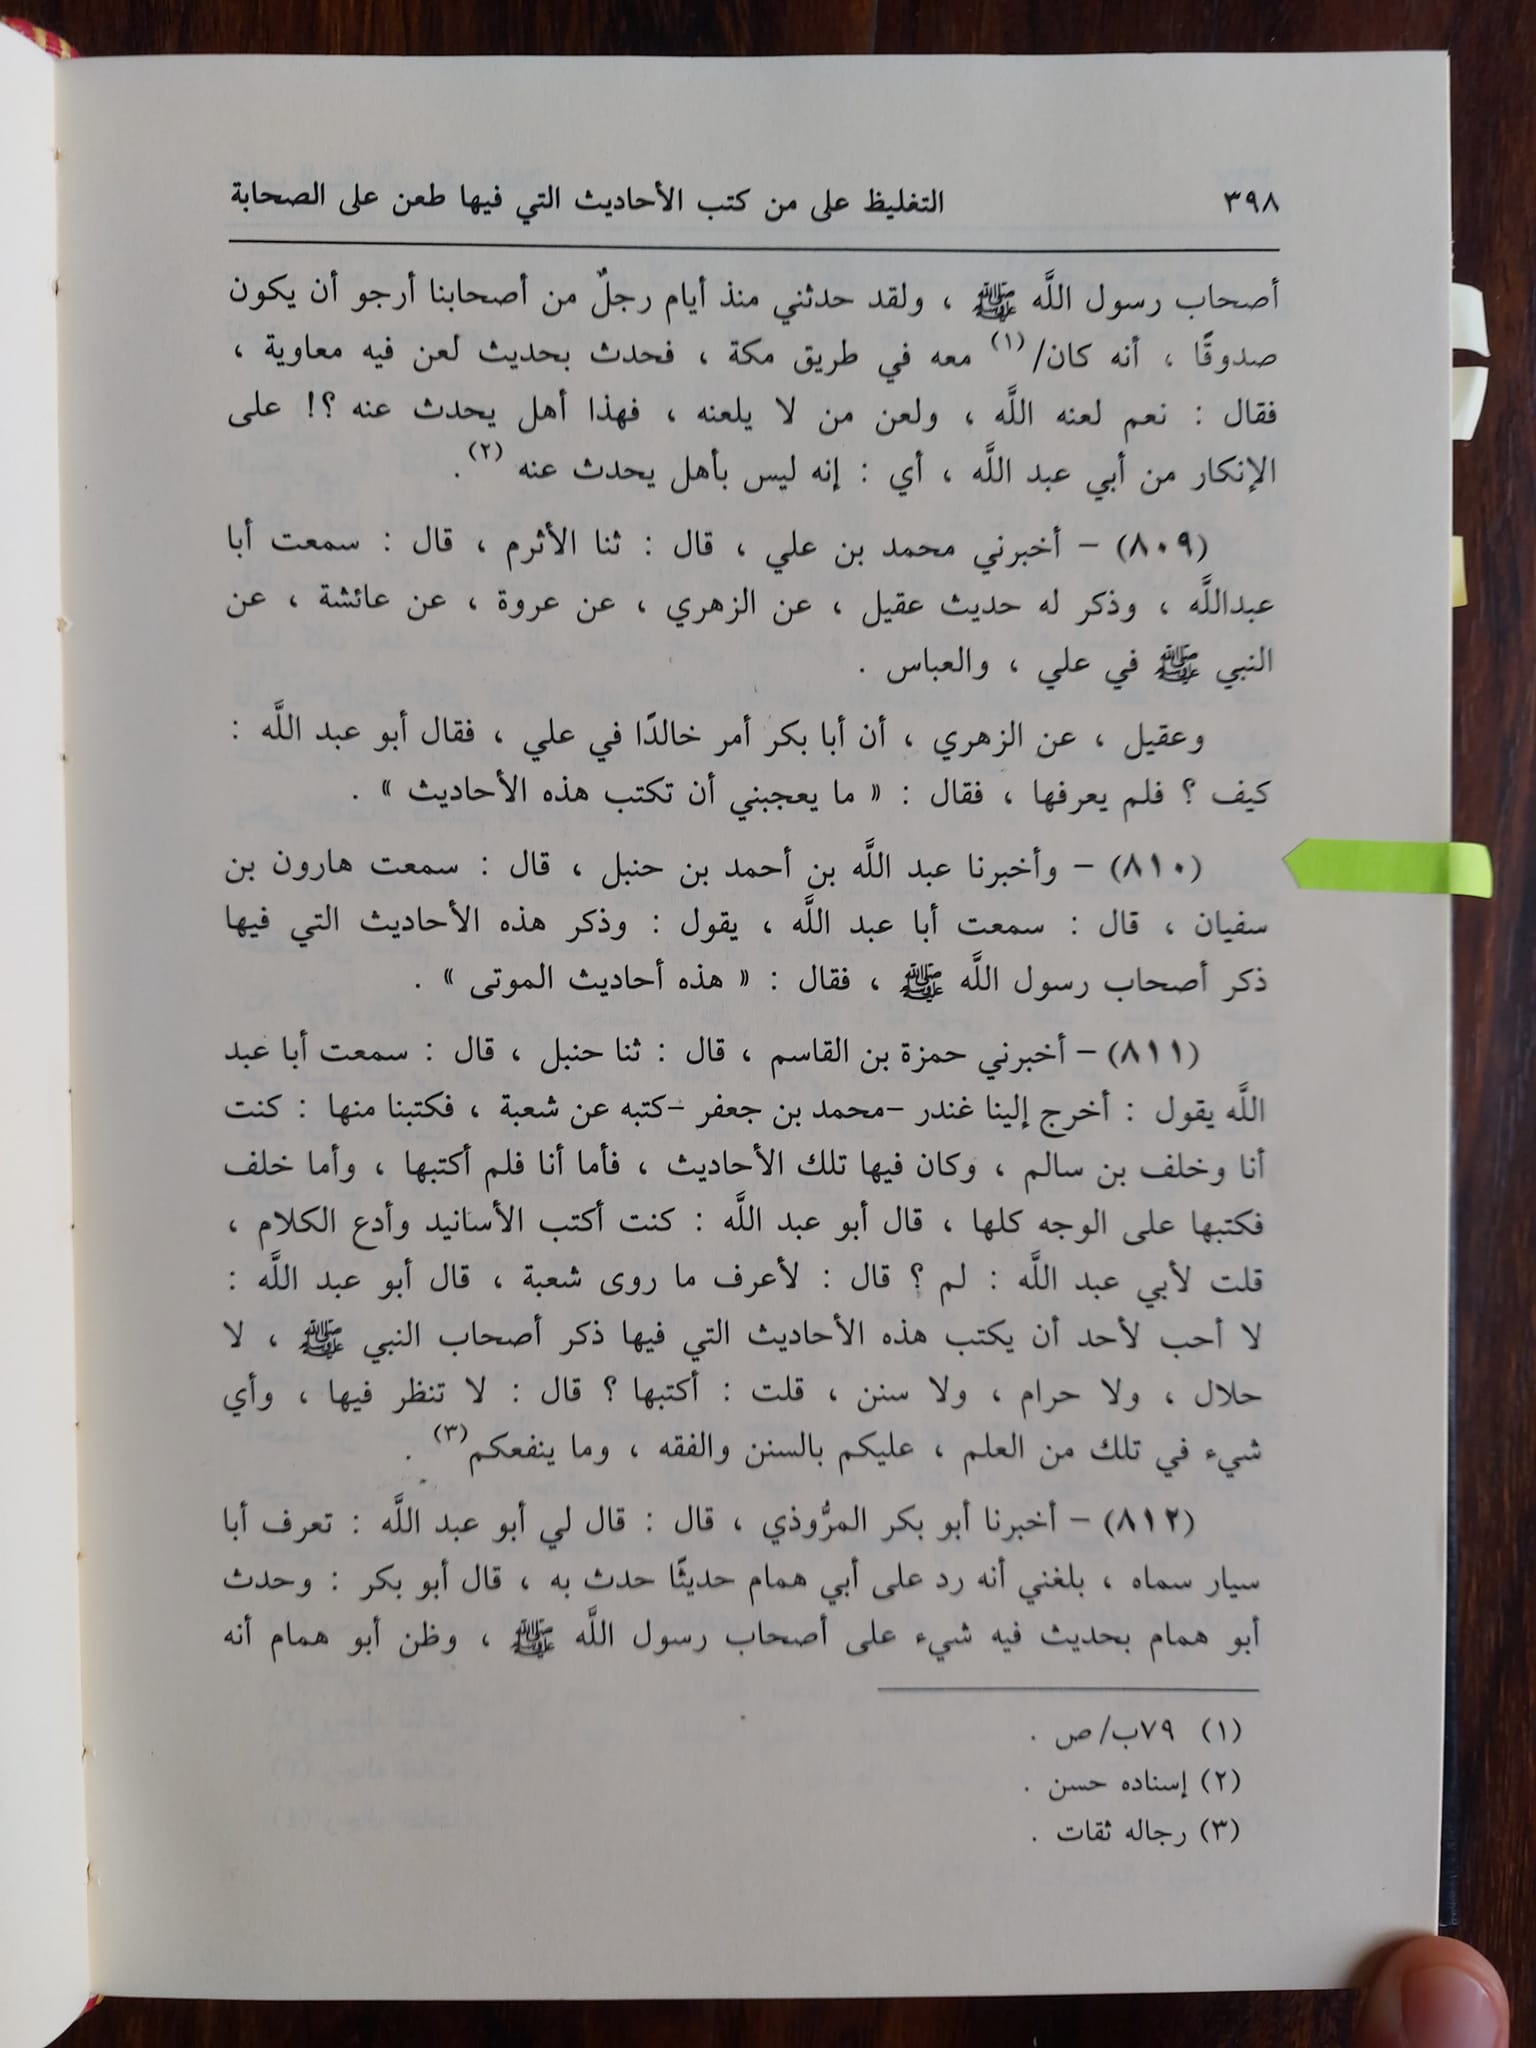 ٣٩٨ التغليظ على من كتب الأحاديث التي فيها طعن على الصحابة
أصحاب رسول اللَّه ﷺ ، ولقد حدثني منذ أيام رجلٌ من أصحابنا أرجو أن يكون
صدوقًا ، أنه كان/(١) معه في طريق مكة ، فحدث بحديث لعن فيه معاوية ،
فقال : نعم لعنه اللَّه ، ولعن من لا يلعنه ، فهذا أهل يحدث عنه ؟! على
الإنكار من أبي عبد اللَّه ، أي : إنه ليس بأهل يحدث عنه (٢) .
(٨٠٩) – أخبرني محمد بن علي ، قال : ثنا الأثرم ، قال : سمعت أبا
عبداللَّه ، وذكر له حديث عقيل ، عن الزهري ، عن عروة ، عن عائشة ، عن
النبي ﷺ في علي ، والعباس .
وعقيل ، عن الزهري ، أن أبا بكر أمر خالدًا في علي ، فقال أبو عبد اللَّه :
كيف ؟ فلم يعرفها ، فقال : « ما يعجبني أن تكتب هذه الأحاديث » .
(٨١٠) – وأخبرنا عبد اللَّه بن أحمد بن حنبل ، قال : سمعت هارون بن
سفيان ، قال : سمعت أبا عبد اللَّه ، يقول : وذكر هذه الأحاديث التي فيها
ذكر أصحاب رسول اللَّه ﷺ ، فقال : « هذه أحاديث الموتى » .
(٨١١) – أخبرني حمزة بن القاسم ، قال : ثنا حنبل ، قال : سمعت أبا عبد
اللَّه يقول : أخرج إلينا غندر –محمد بن جعفر –كتبه عن شعبة ، فكتبنا منها : كنت
أنا وخلف بن سالم ، وكان فيها تلك الأحاديث ، فأما أنا فلم أكتبها ، وأما خلف
فكتبها على الوجه كلها ، قال أبو عبد اللَّه : كنت أكتب الأسانيد وأدع الكلام ،
قلت لأبي عبد اللَّه : لم ؟ قال : لأعرف ما روى شعبة ، قال أبو عبد اللَّه :
لا أحب لأحد أن يكتب هذه الأحاديث التي فيها ذكر أصحاب النبي ﷺ ، لا
حلال ، ولا حرام ، ولا سنن ، قلت : أكتبها ؟ قال : لا تنظر فيها ، وأي
شيء في تلك من العلم ، عليكم بالسنن والفقه ، وما ينفعكم(٣) .
(٨١٢) – أخبرنا أبو بكر المرُّوذي ، قال : قال لي أبو عبد اللَّه : تعرف أبا
سيار سماه ، بلغني أنه رد على أبي همام حديثًا حدث به ، قال أبو بكر : وحدث
أبو همام بحديث فيه شيء على أصحاب رسول اللَّه ﷺ ، وظن أبو همام أنه
(١) ٧٩ب/ص .
(٢) إسناده حسن .
(٣) رجاله ثقات .